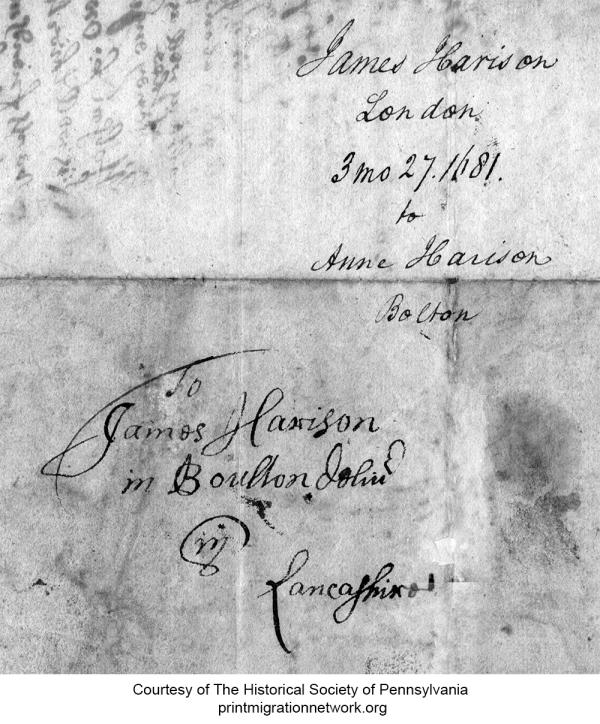 James Harison
London
3 mo 27. 1681.
to
Anne Harison
Bolton
To
James Harison
in Boulton deliu^d
in
Lancashire
Courtesy of The Historical Society of Pennsylvania
printmigrationnetwork.org